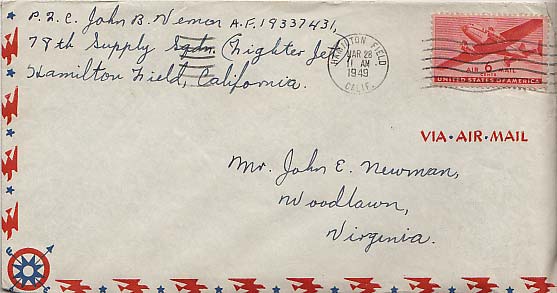 P.F.C. John B. Vernon A.F. 19337431,
78th Supply Sqdn. (Fighter Jet)
Hamilton Field, California.
HAMILTON FIELD
MAR 28
11 AM
1949
CALIF.
AIR 6¢ MAIL
UNITED STATES OF AMERICA
VIA·AIR·MAIL
Mr. John E. Newman,
Woodlawn,
Virginia.